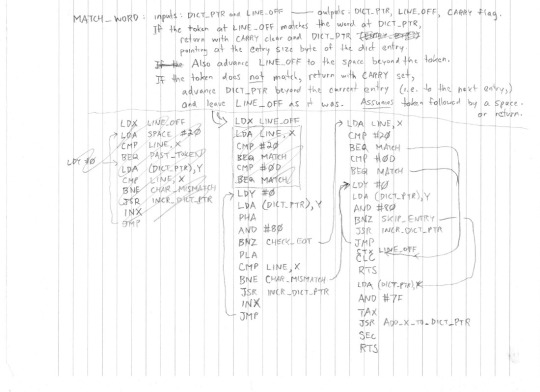 MATCH_WORD: inputs: DICT_PTR and LINE_OFF — outputs: DICT_PTR, LINE_OFF, CARRY flag.
If the token at LINE_OFF matches the word at DICT_PTR,
return with CARRY clear and DICT_PTR
pointing at the entry size byte of the dict entry.
If the Also advance LINE_OFF to the space beyond the token.
If the token does not match, return with CARRY set,
advance DICT_PTR beyond the current entry (i.e. to the next entry,)
and leave LINE_OFF as it was. Assumes token followed by a space.
or return.
LDX LINE_OFF
LDA SPACE #20
CMP LINE,X
BEQ PAST_TOKEN
LDY #0
LDA (DICT_PTR),Y
CMP LINE,X
BNE CHAR_MISMATCH
JSR INCR_DICT_PTR
INX
JMP
LDX LINE_OFF
LDA LINE,X
CMP #20
BEQ MATCH
CMP #0D
BEQ MATCH
LDY #0
LDA (DICT_PTR),Y
PHA
AND #80
BNZ CHECK_EOT
PLA
CMP LINE,X
BNE CHAR_MISMATCH
JSR INCR_DICT_PTR
INX
JMP
LDA LINE,X
CMP #20
BEQ MATCH
CMP #0D
BEQ MATCH
LDY #0
LDA (DICT_PTR),Y
AND #80
BNZ SKIP_ENTRY
JSR INCR_DICT_PTR
JMP
STX LINE_OFF
CLC
RTS
LDA (DICT_PTR)
AND #7F
TAX
JSR ADD_X_TO_DICT_PTR
SEC
RTS